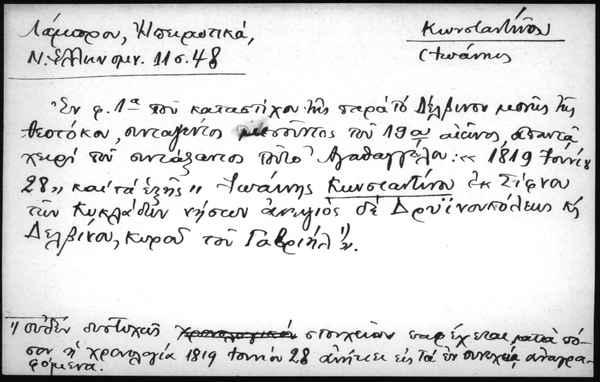 Λάμπρου, Ἠπειρωτικά,
Ν. Ἑλληνομν. 11 σ. 48
Κωνσταντίνου
Ἰωάννης
Ἐν φ. 1α τοῦ καταστίχου τῆς παρὰ τὸ Δέλβινον μονῆς τῆς
Θεοτόκου, συνταγέντος μεσοῦντος τοῦ 19ου αἰῶνος, ἀπαντᾷ
χειρὶ τοῦ συντάξαντος τοῦτο Ἀγαθαγγέλου: « 1819 Ἰουνίου
28 » καὶ τὰ ἑξῆς " Ἰωάννης Κωνσταντίνου ἐκ Σίφνου
τῶν Κυκλάδων νήσων ἀνεψιὸς δὲ Δρυϊνουπόλεως κ
Δελβίνου, κυροῦ τοῦ Γαβριήλ 1)
1) οὐδὲν δυστυχῶς χρονολογικὸν στοιχεῖον παρέχεται κατὰ πό-
σον ἡ χρονολογία 1819 Ἰουνίου 28 ἀνήκει εἰς τὰ ἐν συνεχείᾳ ἀναγρα-
φόμενα.